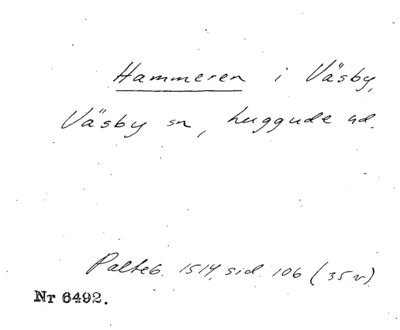 Hammeren i Väsby,
Väsby sn, Luggude hd.
Palteb. 1514, sid. 106 (35 v)
Nr 6492.